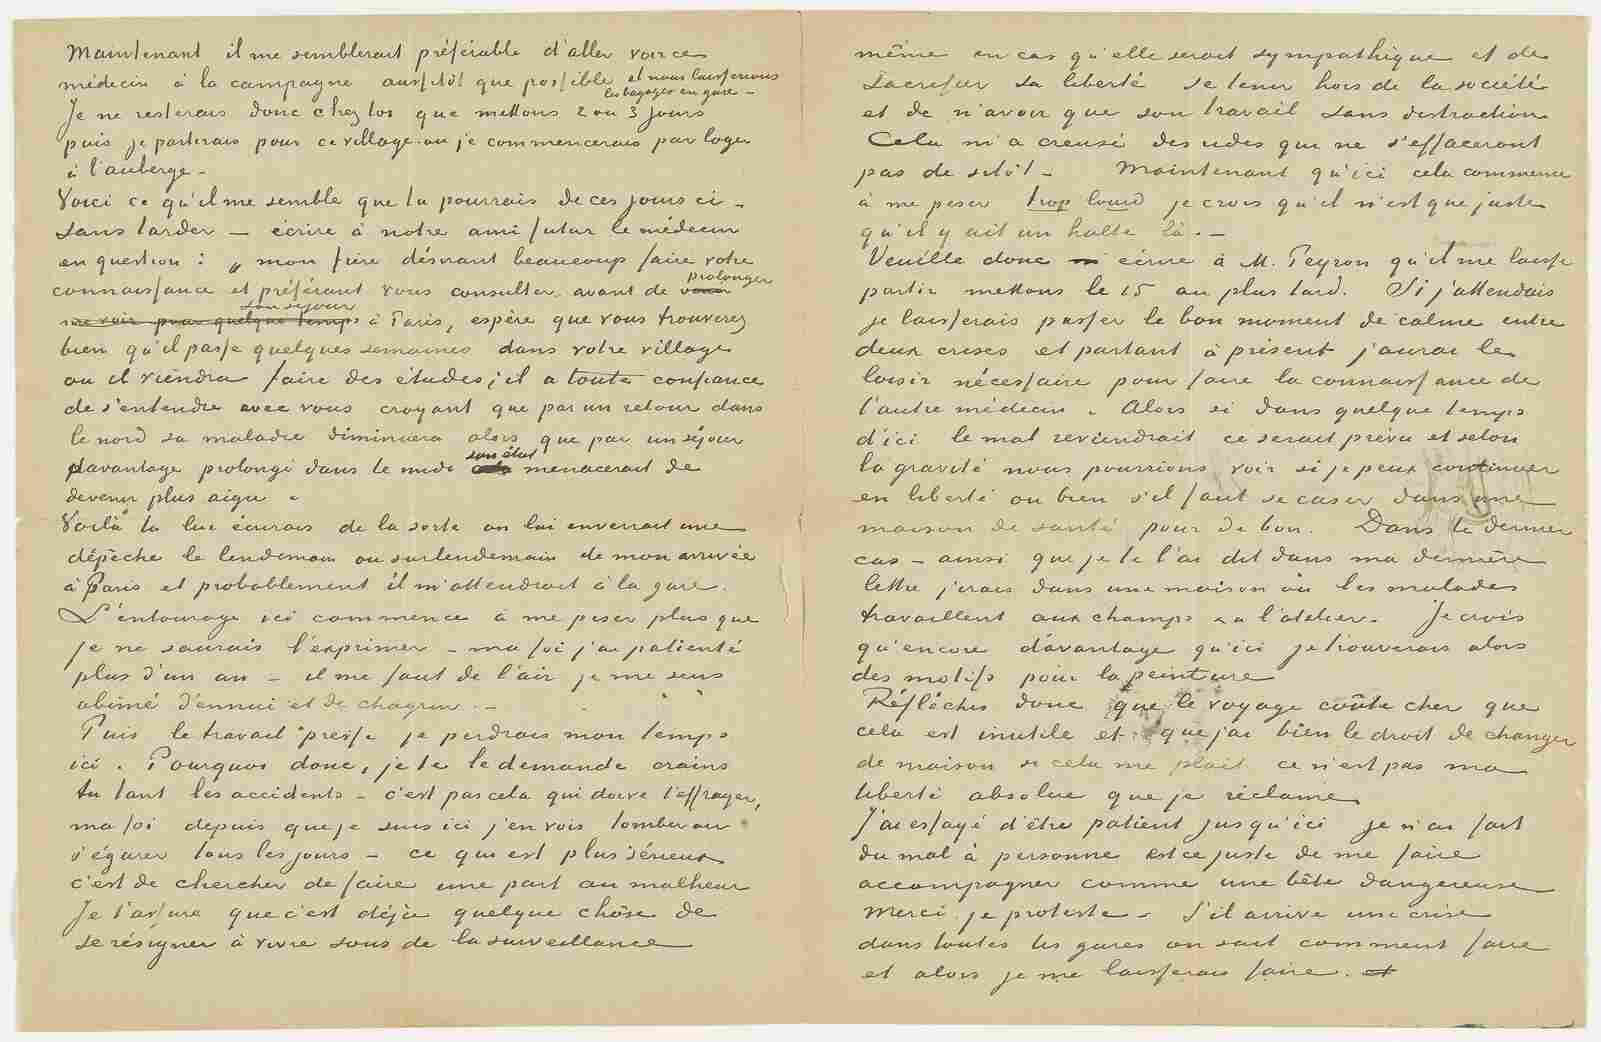 Maintenant il me semblerait préférable d'aller voir ce
médecin à la campagne aussitôt que possible et nous laisserions
les bagages en gare –
Je ne resterais donc chez toi que mettons 2 ou 3 jours
puis je partirais pour ce village où je commencerais par loger
à l'auberge –
Voici ce qu'il me semble que tu pourrais de ces jours ci –
sans tarder – écrire à notre ami futur le médecin
en question: „ mon frère désirant beaucoup faire votre
connaissance et préférant vous consulter avant de prolonger
son séjour
me voir pour quelque temps à Paris, espère que vous trouverez
bien qu'il passe quelques semaines dans votre village
ou il viendra faire des études; il a toute confiance
de s'entendre avec vous croyant que par un retour dans
le nord sa maladie diminuera alors que par un séjour
davantage prolongé dans le midi son état menacerait de
devenir plus aigu „
Voilà tu lui écrirais de la sorte on lui enverrait une
dépêche le lendemain ou surlendemain de mon arrivée
à Paris et probablement il m'attendrait à la gare.
L'entourage ici commence à me peser plus que
je ne saurais l'exprimer – ma foi j'ai patienté
plus d'un an – il me faut de l'air je me sens
abimé d'ennui et de chagrin. –
Puis le travail presse je perdrais mon temps
ici. Pourquoi donc, je te le demande crains
tu tant les accidents – c'est pas cela qui doive t'effrayer,
ma foi depuis que je suis ici j'en vois tomber ou
s'égarer tous les jours – ce qui est plus sérieux
c'est de chercher de faire une part au malheur
Je t'assure que c'est déjà quelque chôse de
se résigner à vivre sous de la surveillance
même en cas qu'elle serait sympathique et de
sacrifier sa liberté se tenir hors de la société
et de n'avoir que son travail sans distraction
Cela m'a creusé des rides que ne s'effaceront
pas de sitôt – Maintenant qu'ici cela commence
à me peser trop lourd je crois qu'il n'est que juste
qu'il y ait un halte là. –
Veuille donc écrire à M. Peyron qu'il me laisse
partir mettons le 15 au plus tard. Si j'attendais
je laisserais passer le bon moment de calme entre
deux crises et partant à présent j'aurai le
loisir nécessaire pour faire la connaissance de
l'autre médecin. Alors si dans quelque temps
d'ici le mal reviendrait ce serait prévu et selon
la gravité nous pourrions voir si je peux continuer
en liberté ou bien s'il faut se caser dans une
maison de santé pour de bon. Dans le dernier
cas – ainsi que je te l'ai dit dans ma dernière
lettre j'irais dans une maison où les malades
travaillent aux champs & à l'atelier. Je crois
qu'encore davantage qu'ici je trouverais alors
des motifs pour la peinture
Réfléchis donc que le voyage coûte cher que
cela est inutile et que j'ai bien le droit de changer
de maison si cela me plait ce n'est pas ma
liberté absolue que je réclame
J'ai essayé d'être patient jusqu'ici je n'ai fait
du mal à personne est ce juste de me faire
accompagner comme une bête dangereuse
Merci je proteste – S'il arrive une crise
dans toutes les gares on sait comment faire
et alors je me laisserais faire. et